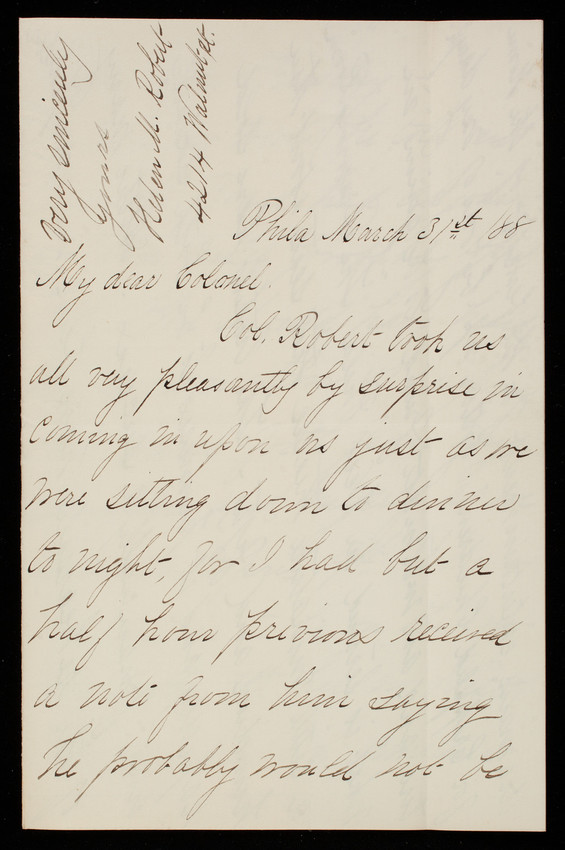 Phila March 31st '88
My dear Colonel.
Col. Robert took us
all very pleasantly by surprise in
coming in upon us just as we
were sitting down to dinner
to night, for I had but a
half hour previous received
a note from him saying
he probably would not be
Very sincerely
yours
Helen M. Robert
4214 Walnut St.